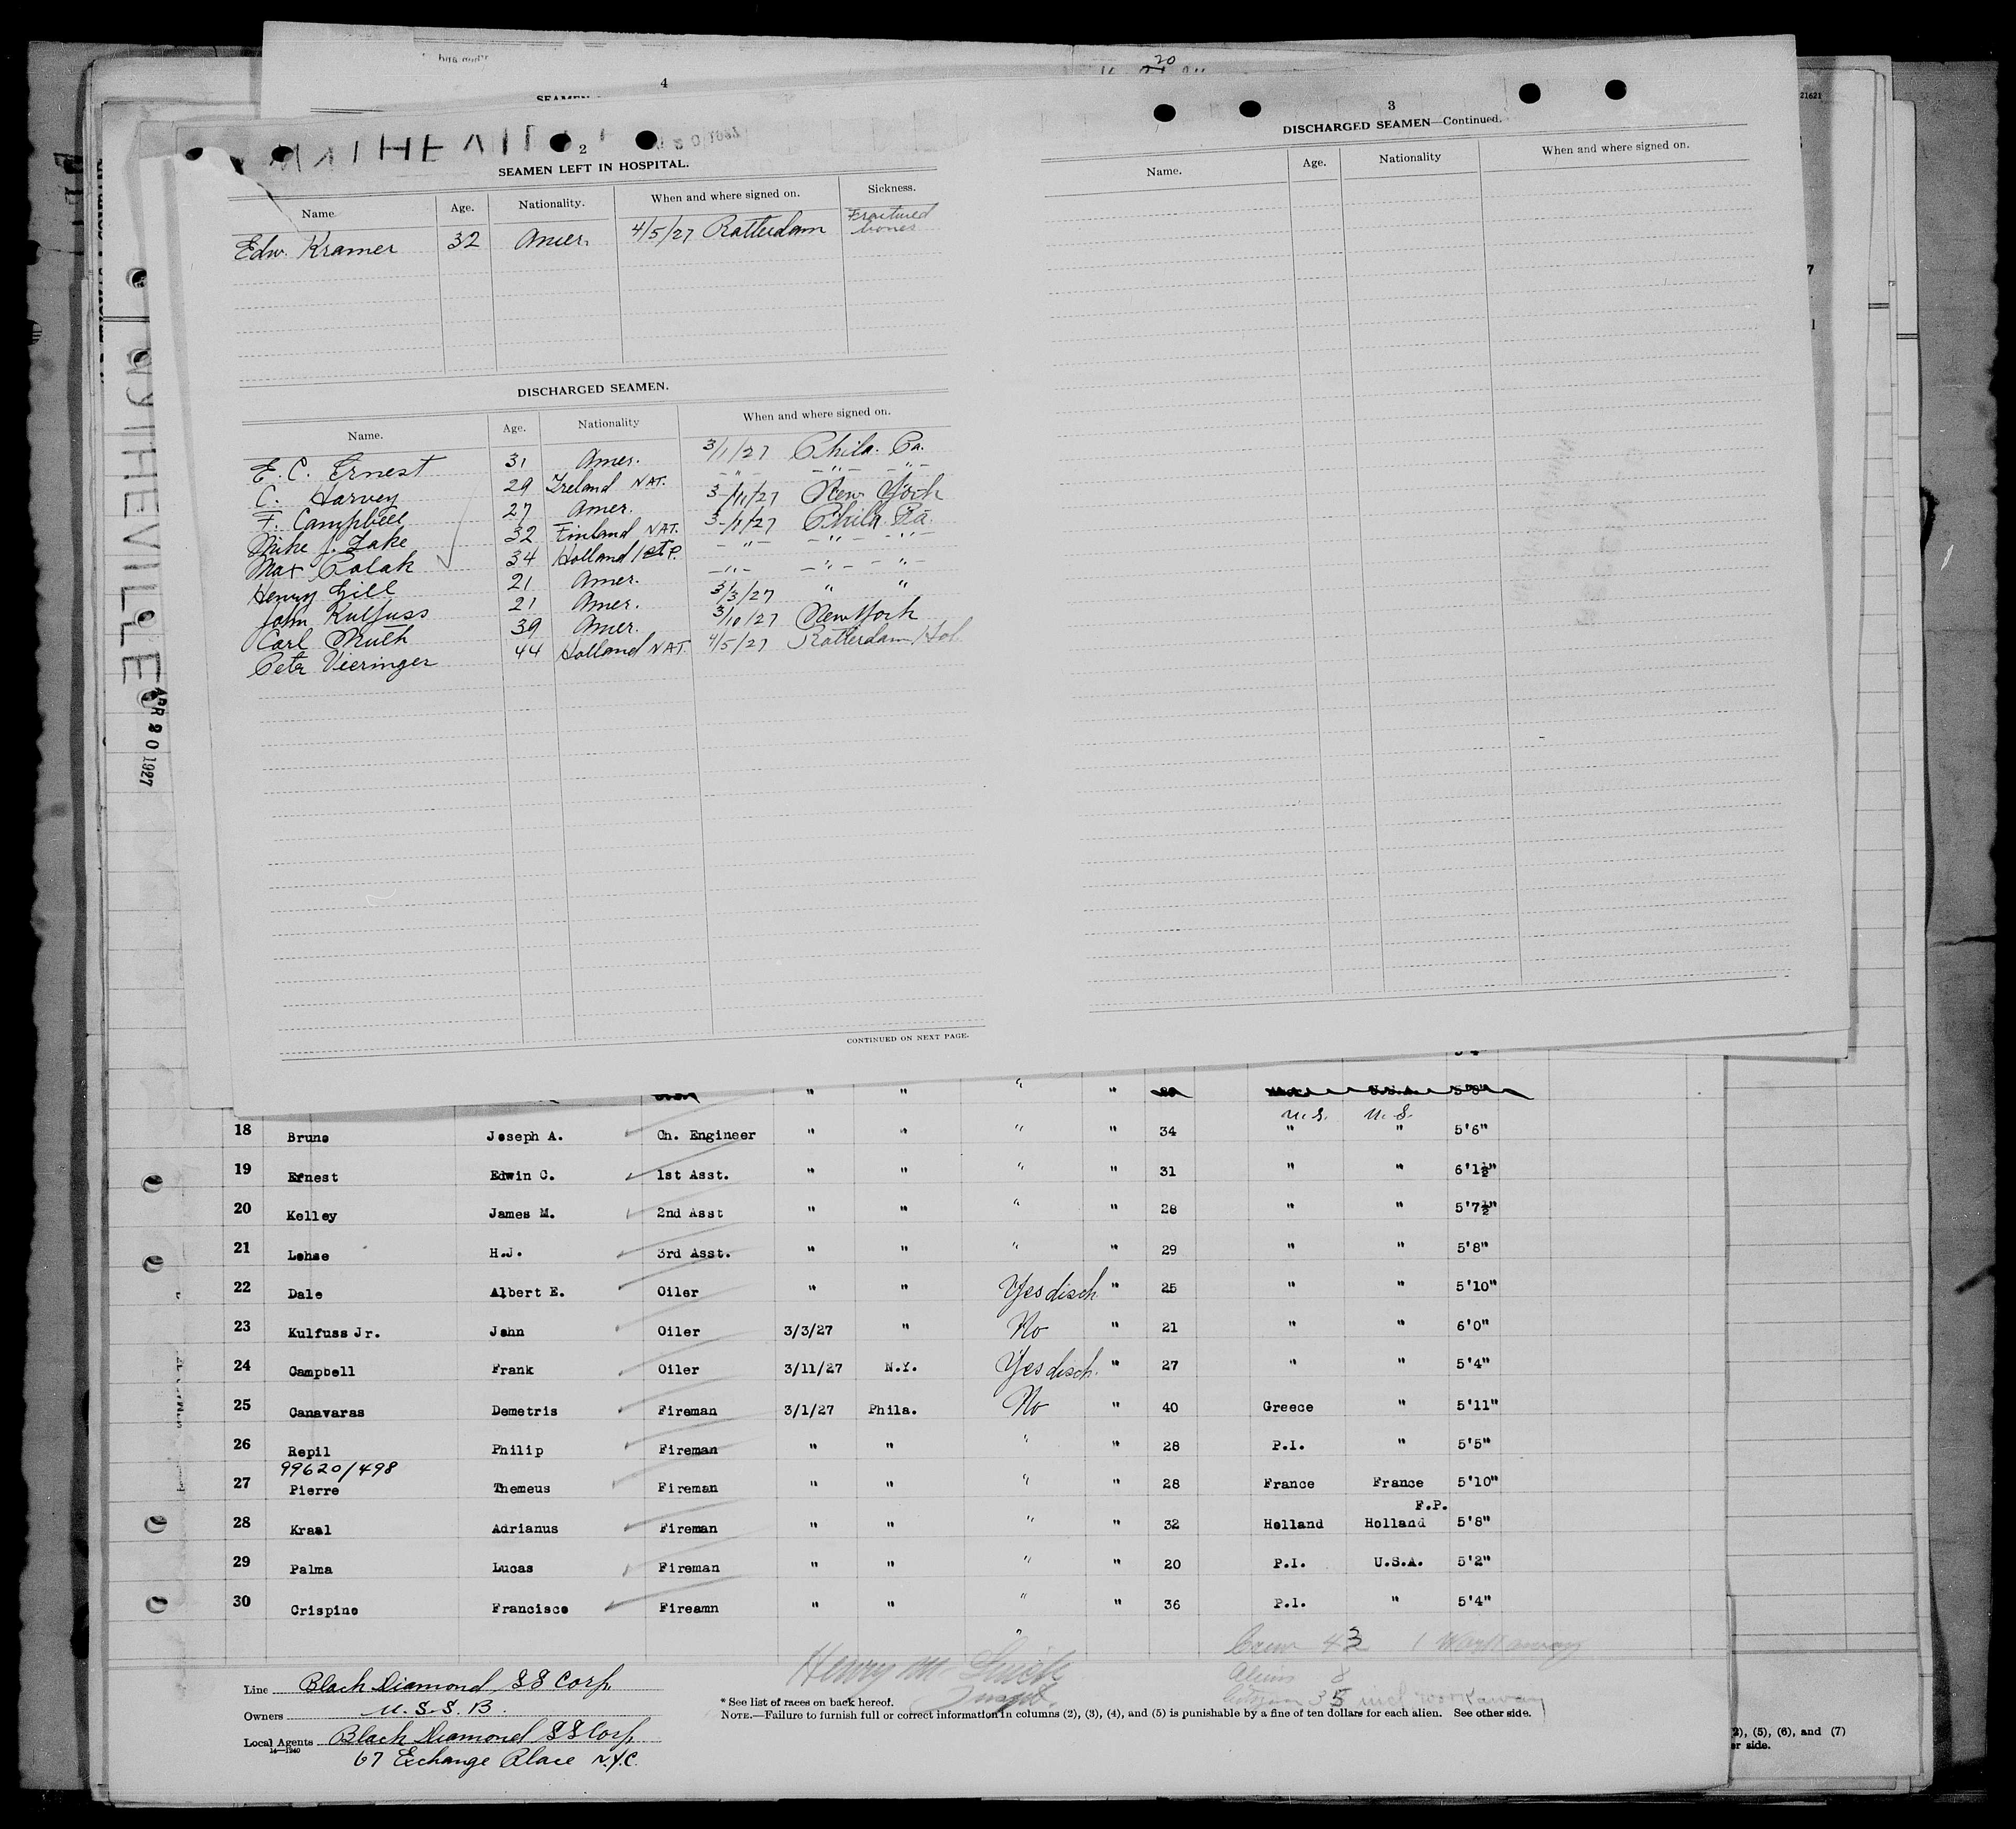 20
4
21621
2
SEAMEN LEFT IN HOSPITAL.
Name Age. Nationality. When and where signed on. Sickness.
Edw. Kramer 32 Amer. 4/5/27 Rotterdam Fractured bones
DISCHARGED SEAMEN.
Name. Age. Nationality When and where signed on.
E. C. Ernest 31 Amer. 3/1/27 Phila. Pa.
C. Harvey 29 Ireland NAT. -"- -"- -"-
F. Campbell 27 Amer. 3-/11/27 New York
Mike J. Lake 32 Finland NAT. 3-/1/27 Phila. Pa.
Max Polak 34 Holland 1st P. -"- -"- -"-
Henry Gill 21 Amer. -"- -"- -"-
John Kulfuss 21 Amer. 3/3/27 " "
Carl Muth 39 Amer. 3/10/27 New York
Petr Vieringer 44 Holland NAT. 4/5/27 Rotterdam Hol
CONTINUED ON NEXT PAGE.
3
DISCHARGED SEAMEN—Continued.
Name. Age. Nationality When and where signed on.
WYTHEVILLE
APR 20 1927
" " " " 5'8"
U.S. U.S.
18 Bruno Joseph A. Ch. Engineer " " " " 34 " " 5'6"
19 Ernest Edwin C. 1st Asst. " " " " 31 " " 6'1½"
20 Kelley James M. 2nd Asst " " " " 28 " " 5'7½"
21 Lehse H.J. 3rd Asst. " " " " 29 " " 5'8"
22 Dale Albert E. Oiler " " Yes disch. " 25 " " 5'10"
23 Kulfuss Jr. John Oiler 3/3/27 " No " 21 " " 6'0"
24 Campbell Frank Oiler 3/11/27 N.Y. Yes disch. " 27 " " 5'4"
25 Canavaras Demetris Fireman 3/1/27 Phila. No " 40 Greece " 5'11"
26 Repil Philip Fireman " " " " 28 P.I. " 5'5"
99620/498
27 Pierre Themeus Fireman " " " " 28 France France 5'10"
F.P.
28 Kraal Adrianus Fireman " " " " 32 Holland Holland 5'8"
29 Palma Lucas Fireman " " " " 20 P.I. U.S.A. 5'2"
30 Crispino Francisco Fireamn " " " " 36 P.I. " 5'4"
"
Crew 43 1 Workaway
Aliens 8
35 incl workaway
Henry M.
Line Black Diamond SS Corp.
Owners U.S.S.B.
Local Agents Black Diamond SS Corp
14—1940
67 Exchange Place N.Y.C.
* See list of races on back hereof.
NOTE.—Failure to furnish full or correct information in columns (2), (3), (4), and (5) is punishable by a fine of ten dollars for each alien. See other side.
2), (5), (6), and (7)
er side.